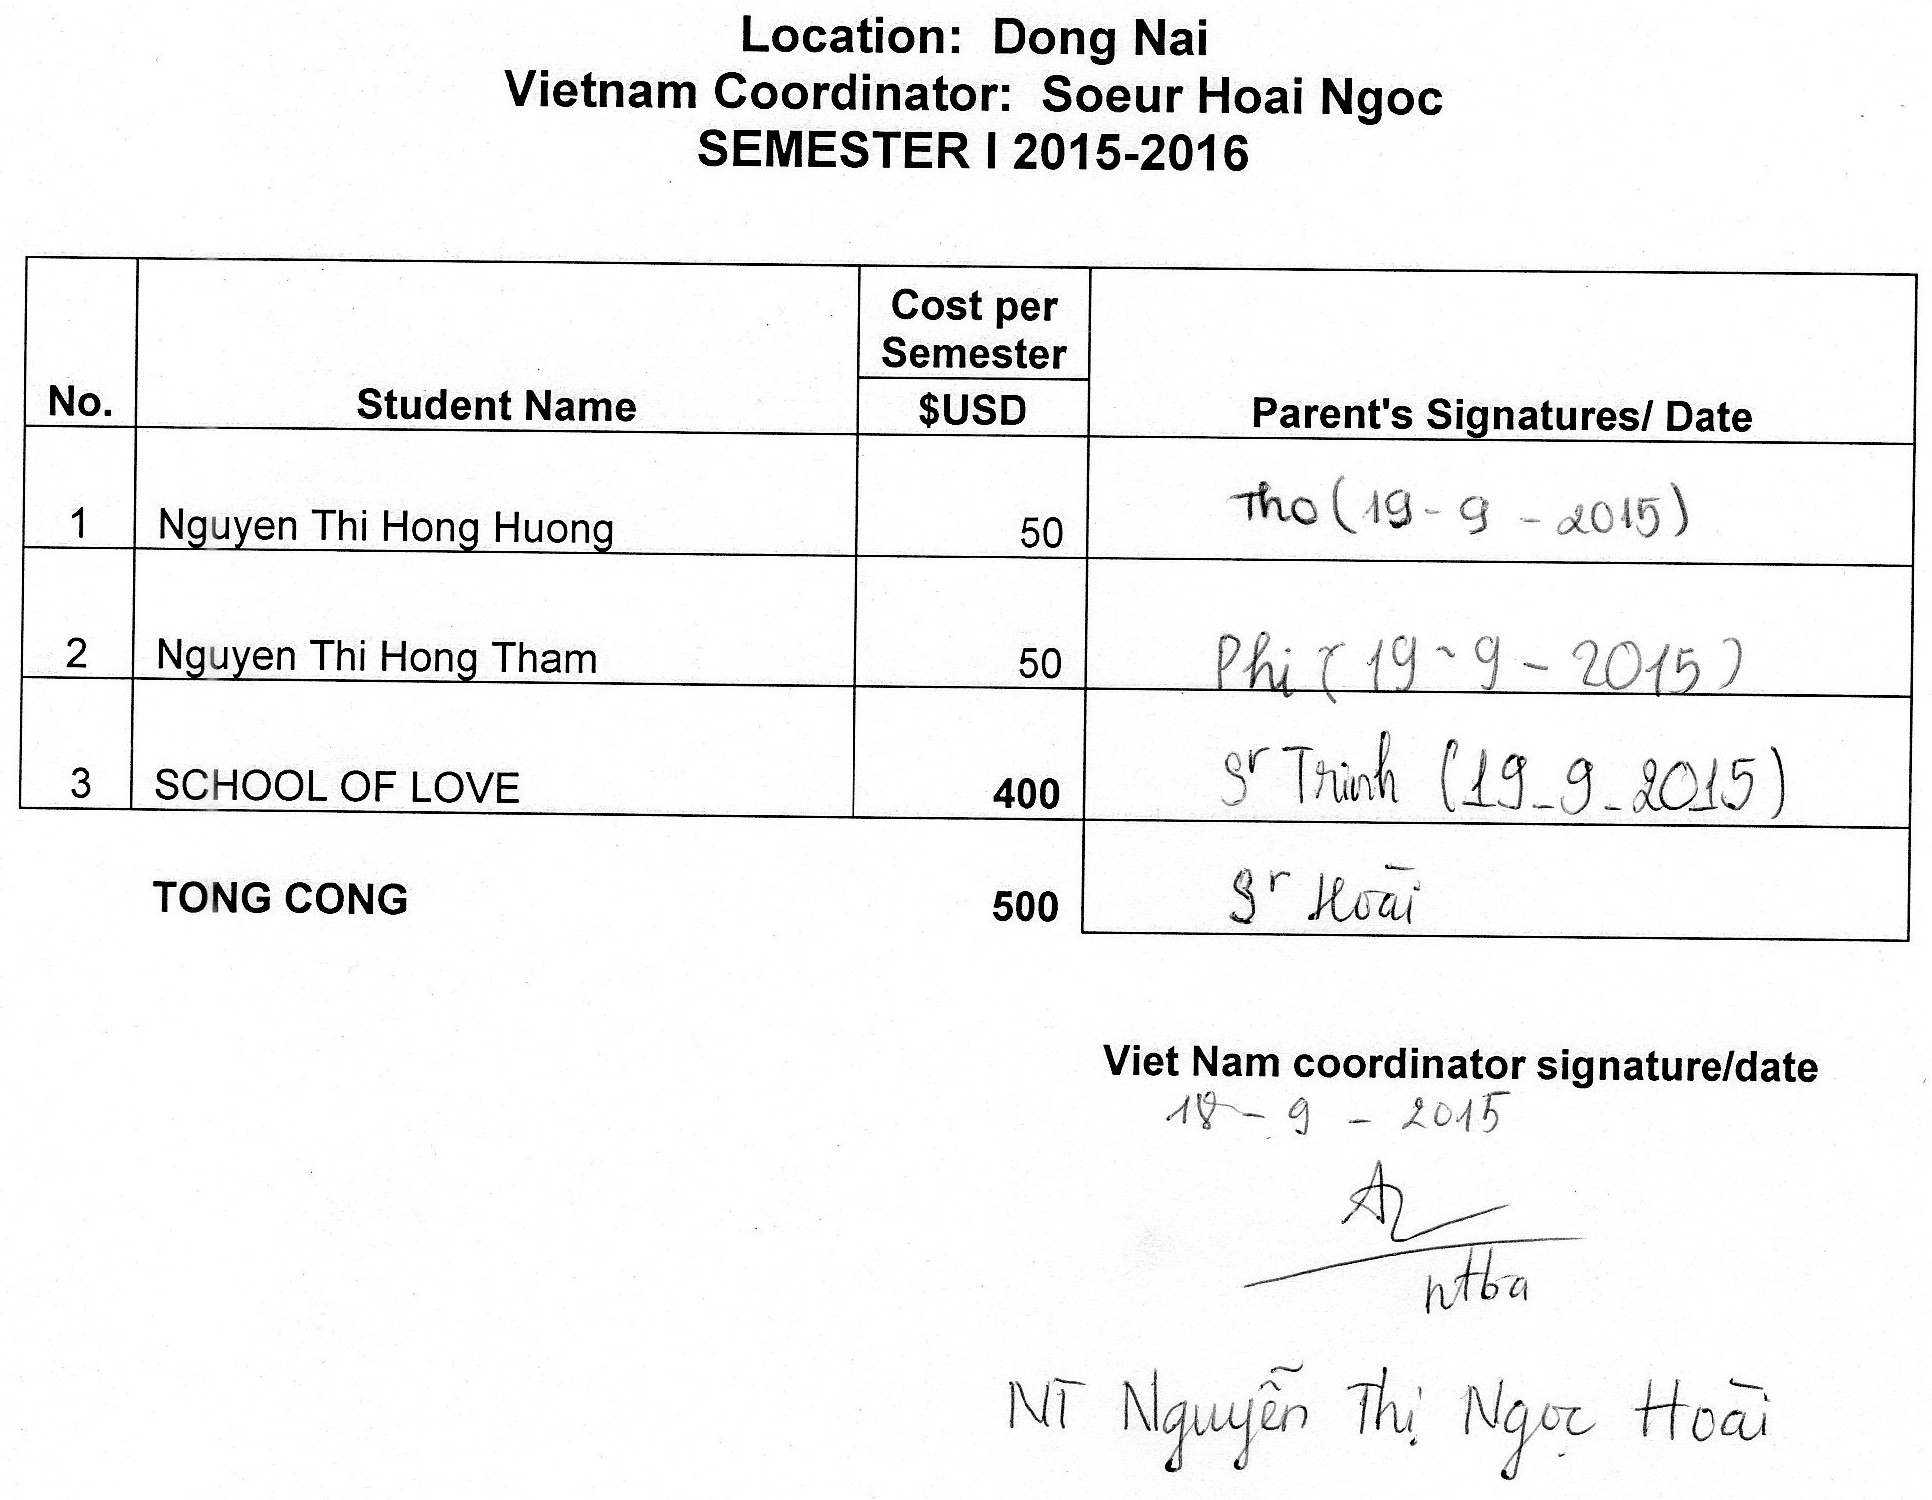 Location: Dong Nai
Vietnam Coordinator: Soeur Hoai Ngoc
SEMESTER I 2015-2016
No. Student Name Cost per Semester $USD Parent's Signatures/ Date
1 Nguyen Thi Hong Huong 50 Tho (19-9-2015)
2 Nguyen Thi Hong Tham 50 Phi (19-9-2015)
3 SCHOOL OF LOVE 400 Sr Trinh (19-9-2015)
TONG CONG 500 Sr Hoài
Viet Nam coordinator signature/date
18-9-2015
ntba
NT Nguyễn Thị Ngọc Hoài